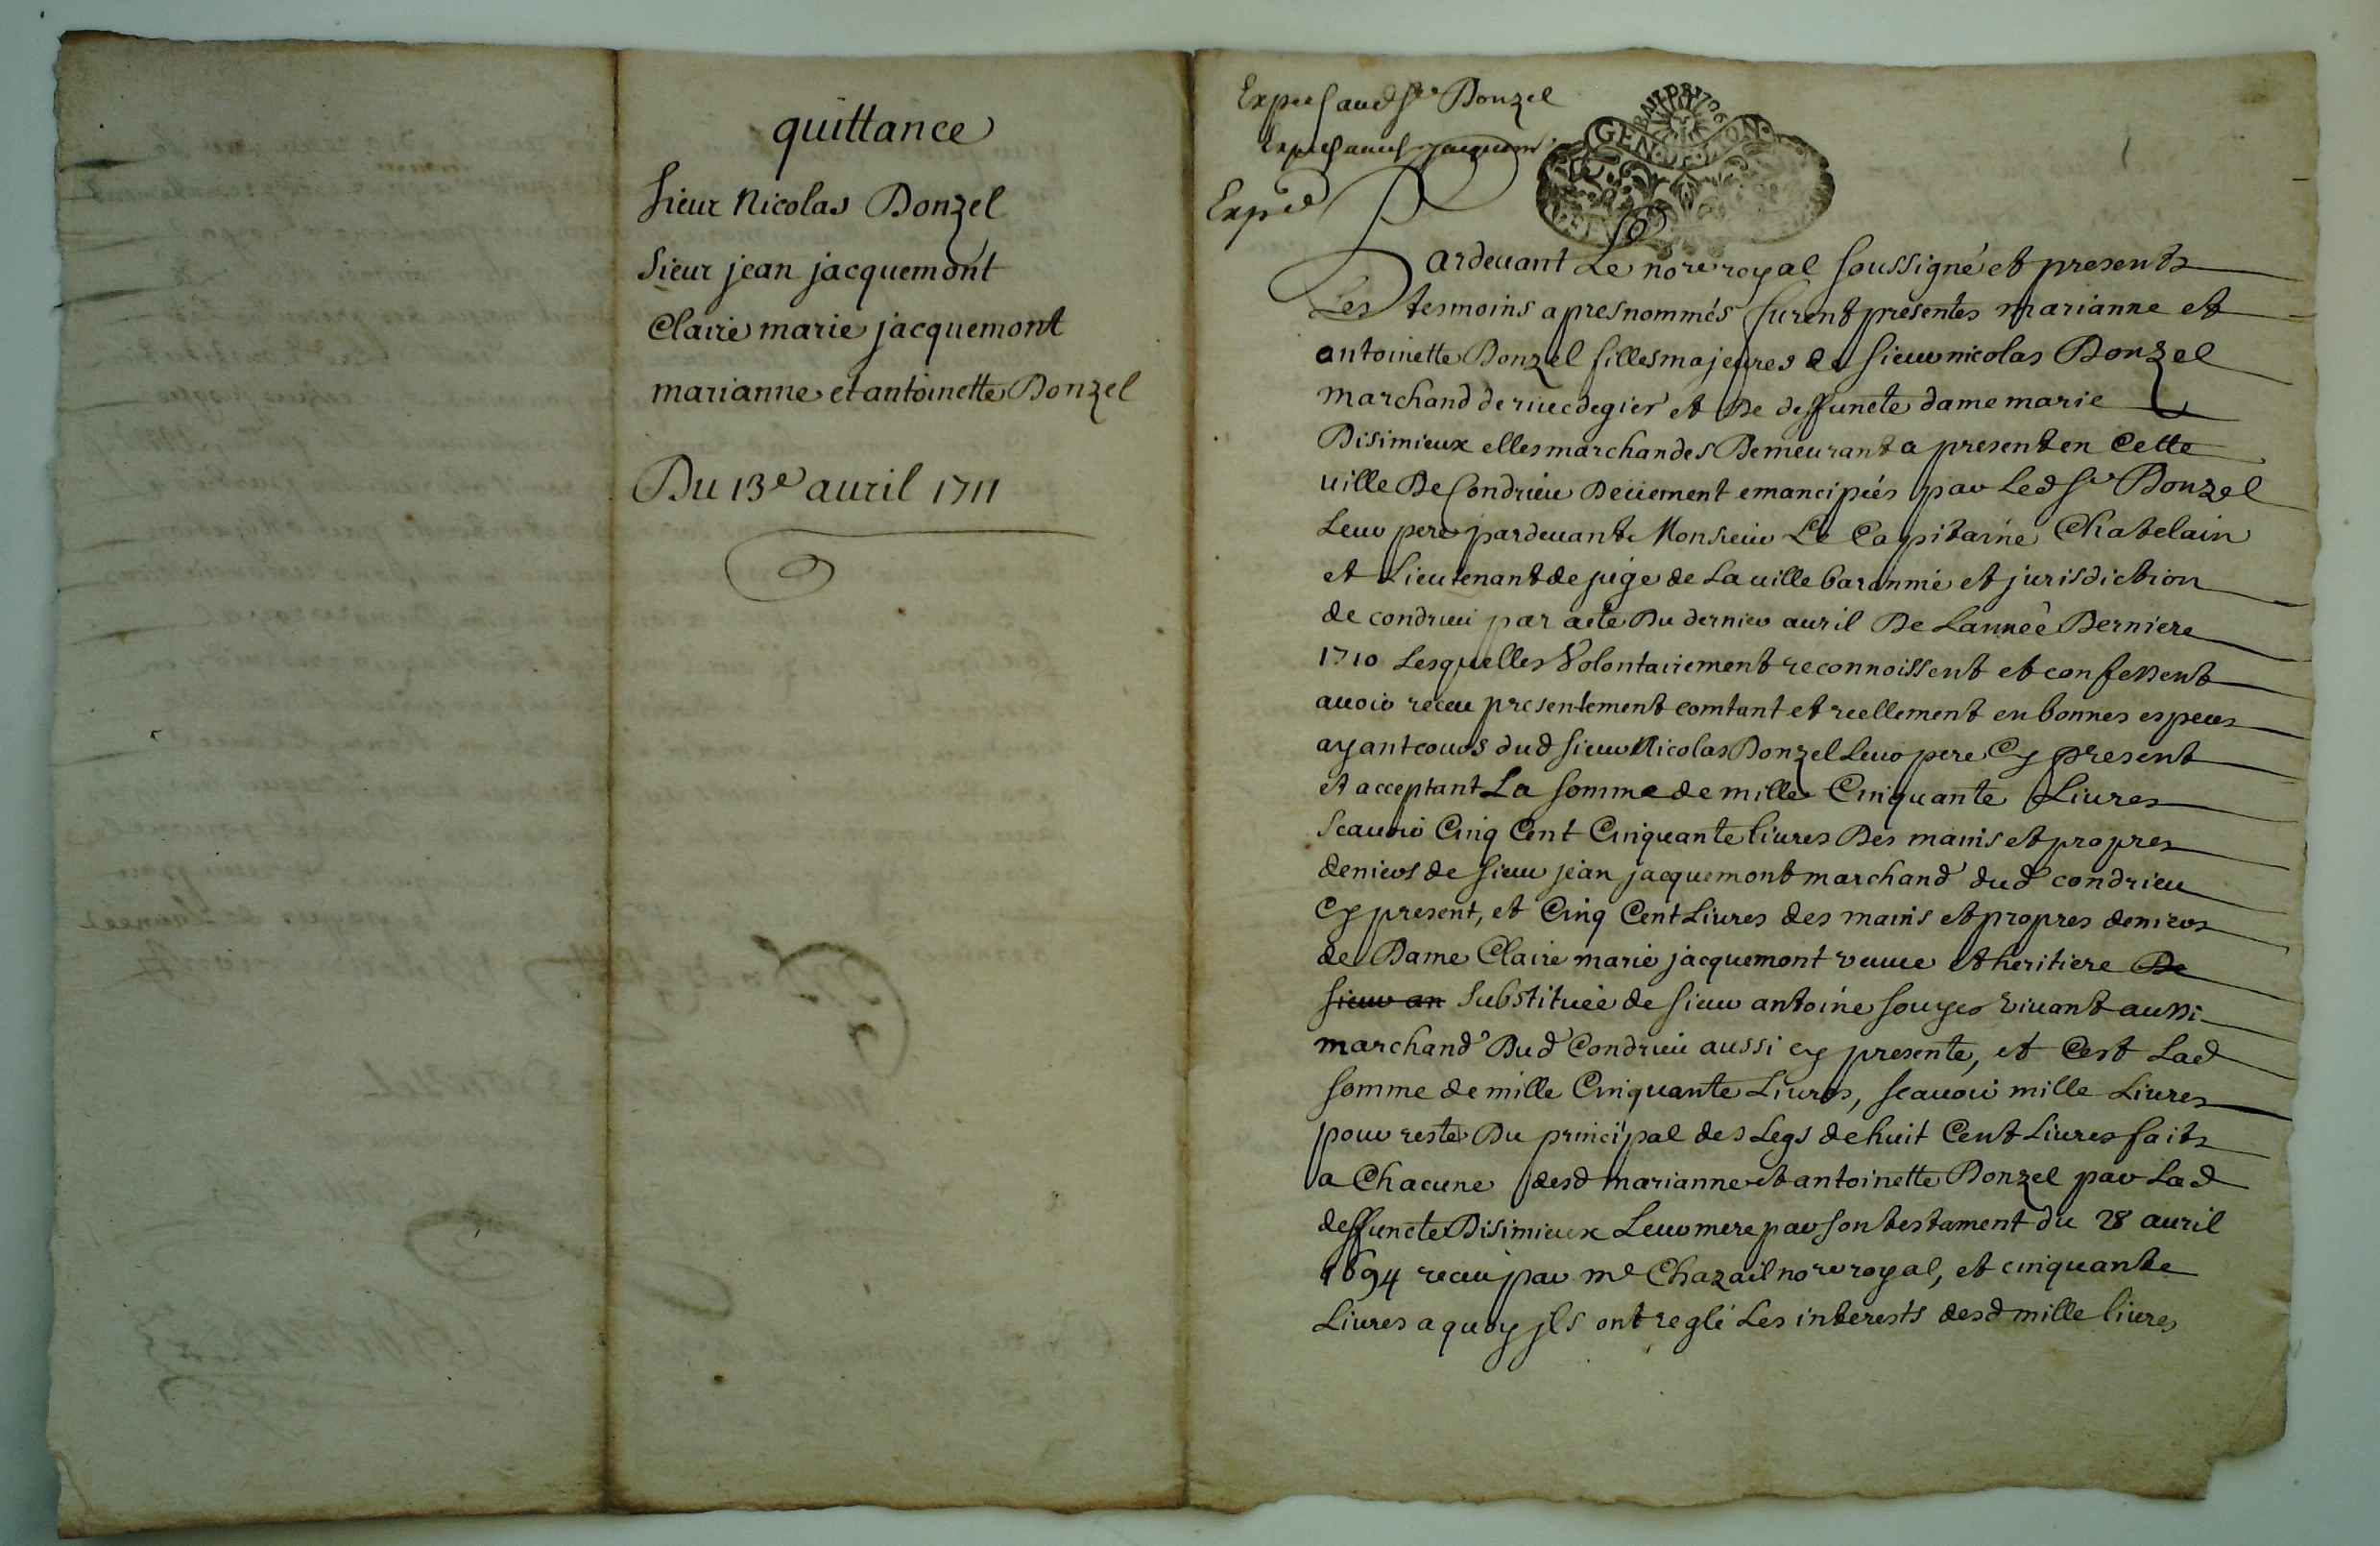 quittance
sieur Nicolas Donzel
Sieur jean jacquemont
Claire marie jacquemont
marianne et antoinette Donzel
Du 13e auril 1711
Donzel
Exped
GEN. DE LION
Pardeuant Le nore royal soussigné et presents
Les tesmoins apres nommés furent presentes marianne et
antoinette Donzel filles majeures de sieur nicolas Donzel
marchand de riuedegier et De deffuncte dame marie
Disimieux elles marchandes Demeurant a present en Cette
uille De Condrieu Deuement emancipées par Led sr Donzel
Leur pere pardeuant Monsieur Le Capitaine Chatelain
et Lieutenant de juge de La uille baronnie et jurisdiction
de condrieu par acte Du dernier auril De Lannée Derniere
1710 Lesquelles Volontairement reconnoissent et confessent
auoir receu presentement comtant et reellement en bonnes especes
ayant cours dud sieur Nicolas Donzel Leur pere Cy present
et acceptant La somme de mille Cinquante Liures
Scauoir Cinq Cent Cinquante liures Des mains et propres
deniers de sieur jean jacquemont marchand dud condrieu
Cy present, et Cinq Cent Liures des mains et propres deniers
de Dame Claire marie jacquemont veuue et heritiere De
sieur an Substituée de sieur antoine viuant aussi
marchand Dud Condrieu aussi cy presente, et Cest Lad
somme de mille Cinquante Liures, scauoir mille Liures
pour reste Du principal des Legs de huit Cent Liures faits
a Chacune desd marianne et antoinette Donzel par Lad
deffuncte Disimieux Leur mere par son testament du 28 auril
1694 receu par me Chazail nore royal, et cinquante
Liures a quoy jls ont reglé Les interests desd mille liures